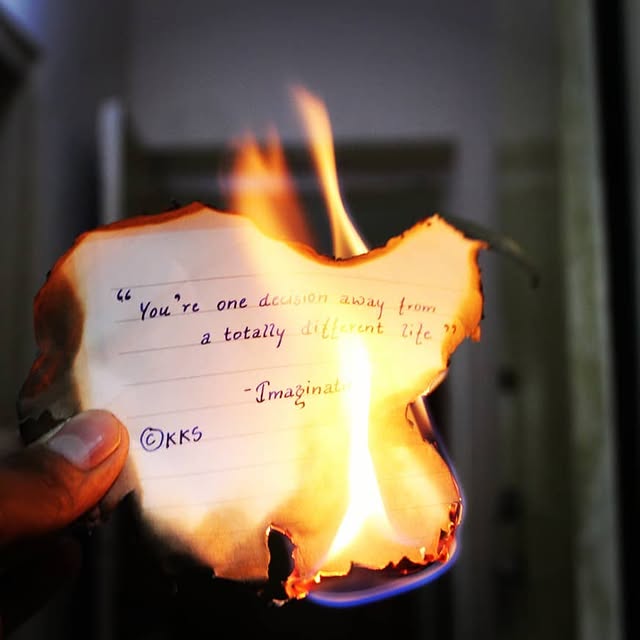 “You're one decision away from
a totally different life”
-Imaginat
©KKS